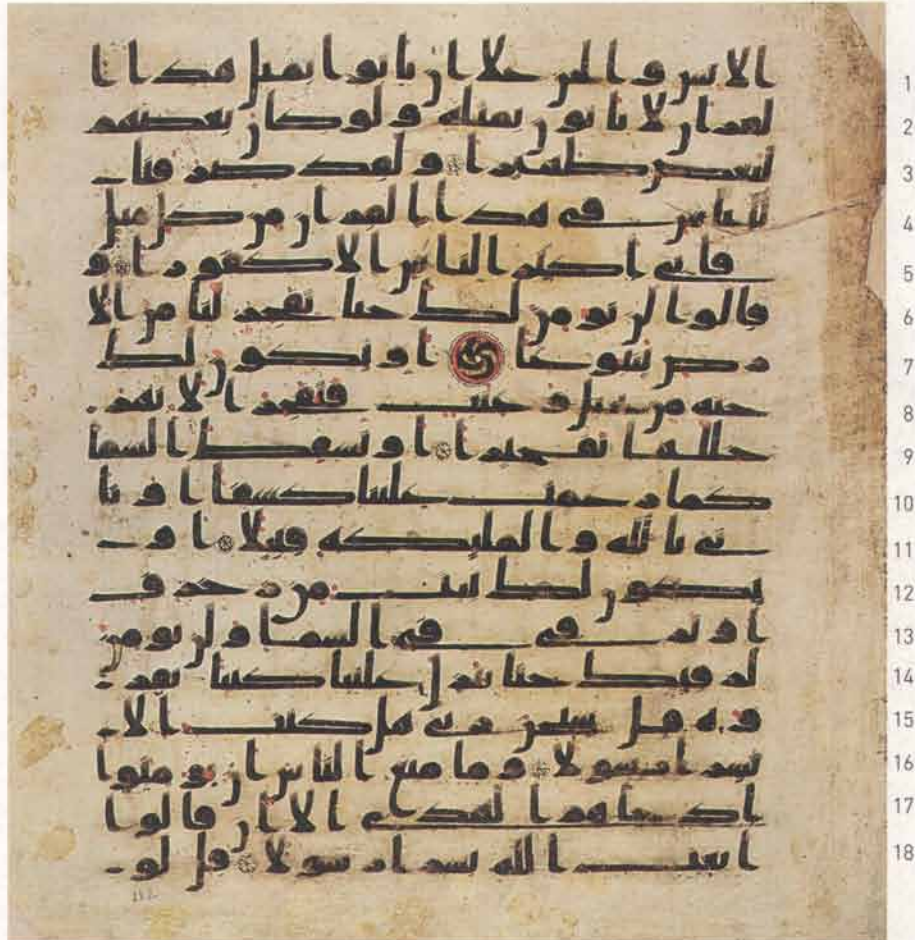 1 الانس والجن علا ان ياتوا بمثل هذا ا
2 لقران لا ياتون بمثله ولو كان بعضهم
3 لبعض ظهيرا ولقد صرفنا
4 للناس في هذا القران من كل مثل
5 فابى اكثر الناس الا كفورا و
6 قالوا لن نومن لك حتا تفجر لنا من الا
7 رض ينبوعا او تكون لك
8 جنه من نخيل وعنب فتفجر الانهر
9 خللها تفجيرا او تسقط السما
10 كما زعمت علينا كسفا او تا
11 تي بالله والمليكه قبيلا او
12 يكون لك بيت من زخرف
13 او ترقى في السما ولن نومن
14 لرقيك حتا تنزل علينا كتبا نقر
15 وه قل سبحن ربي هل كنت الا
16 بشرا رسولا وما منع الناس ان يومنوا
17 اذ جاهم الهدى الا ان قالوا
18 ابعث الله بشرا رسولا قل لو